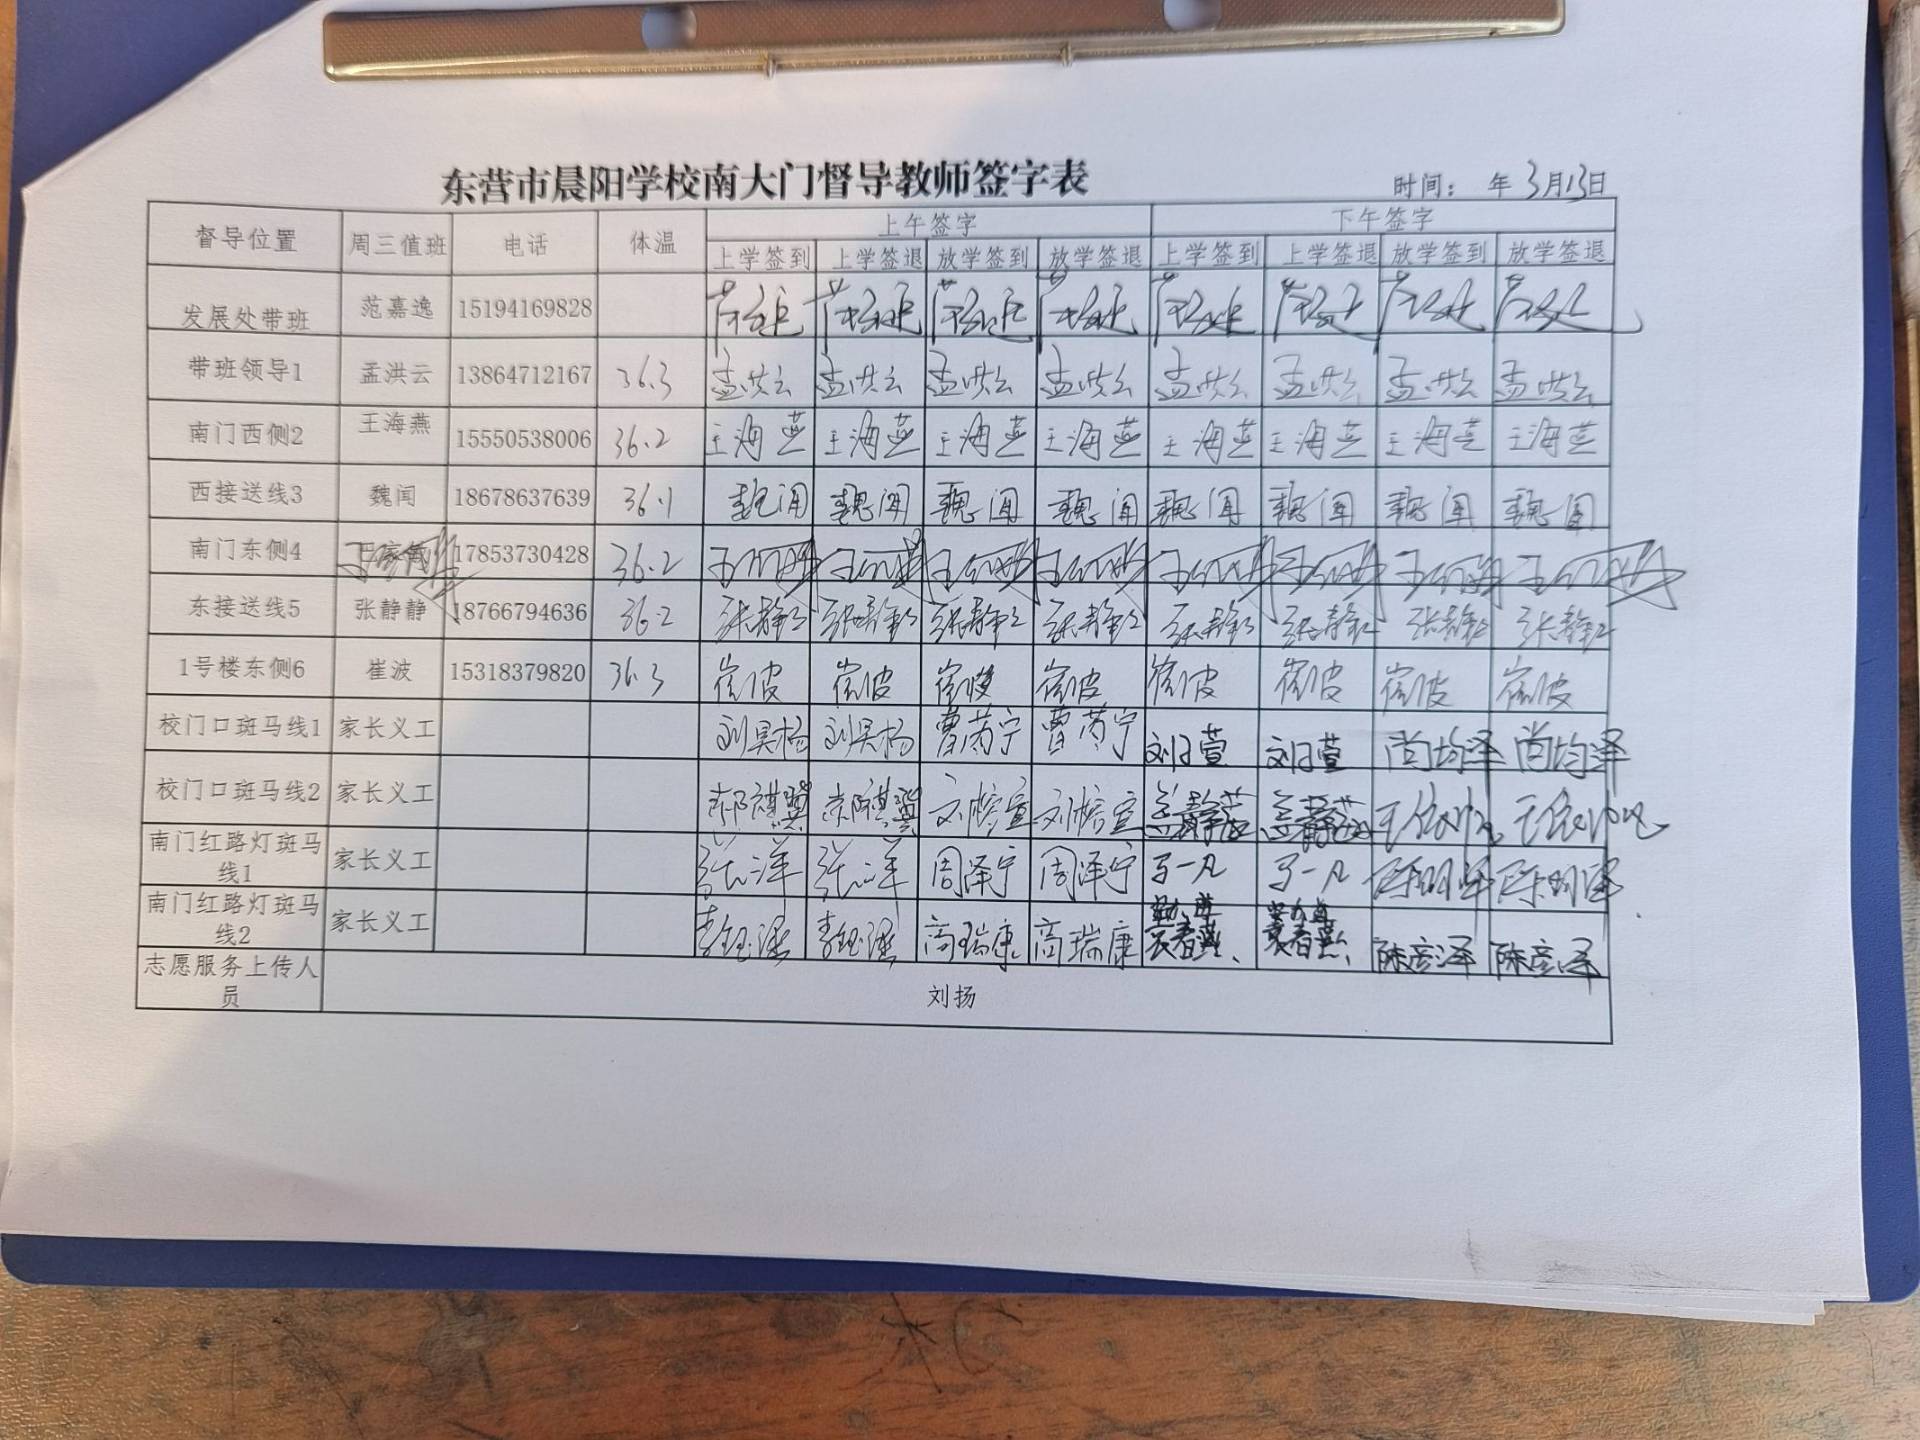 东营市晨阳学校南大门督导教师签字表
时间： 年 3月13日
督导位置 周三值班 电话 体温 上午签字 下午签字
上学签到 上学签退 放学签到 放学签退 上学签到 上学签退 放学签到 放学签退
发展处带班 范嘉逸 15194169828
带班领导1 孟洪云 13864712167 36.3 孟洪云 孟洪云 孟洪云 孟洪云 孟洪云 孟洪云 孟洪云 孟洪云
南门西侧2 王海燕 15550538006 36.2 王海燕 王海燕 王海燕 王海燕 王海燕 王海燕 王海燕 王海燕
西接送线3 魏闻 18678637639 36.1 魏闻 魏闻 魏闻 魏闻 魏闻 魏闻 魏闻 魏闻
南门东侧4 17853730428 36.2
东接送线5 张静静 18766794636 36.2 张静静 张静静 张静静 张静静 张静静 张静静 张静静 张静静
1号楼东侧6 崔波 15318379820 36.3 崔波 崔波 崔波 崔波 崔波 崔波 崔波 崔波
校门口斑马线1 家长义工 刘昊杨 刘昊杨 曹芮宁 曹芮宁 尚均泽 尚均泽
校门口斑马线2 家长义工 刘榕宣 刘榕宣
南门红路灯斑马
线1 家长义工 张洋 张洋 周泽宁 周泽宁 马一凡 马一凡 陈明泽 陈明泽
南门红路灯斑马
线2 家长义工 高瑞康 高瑞康 陈彦泽 陈彦泽
志愿服务上传人
员 刘扬